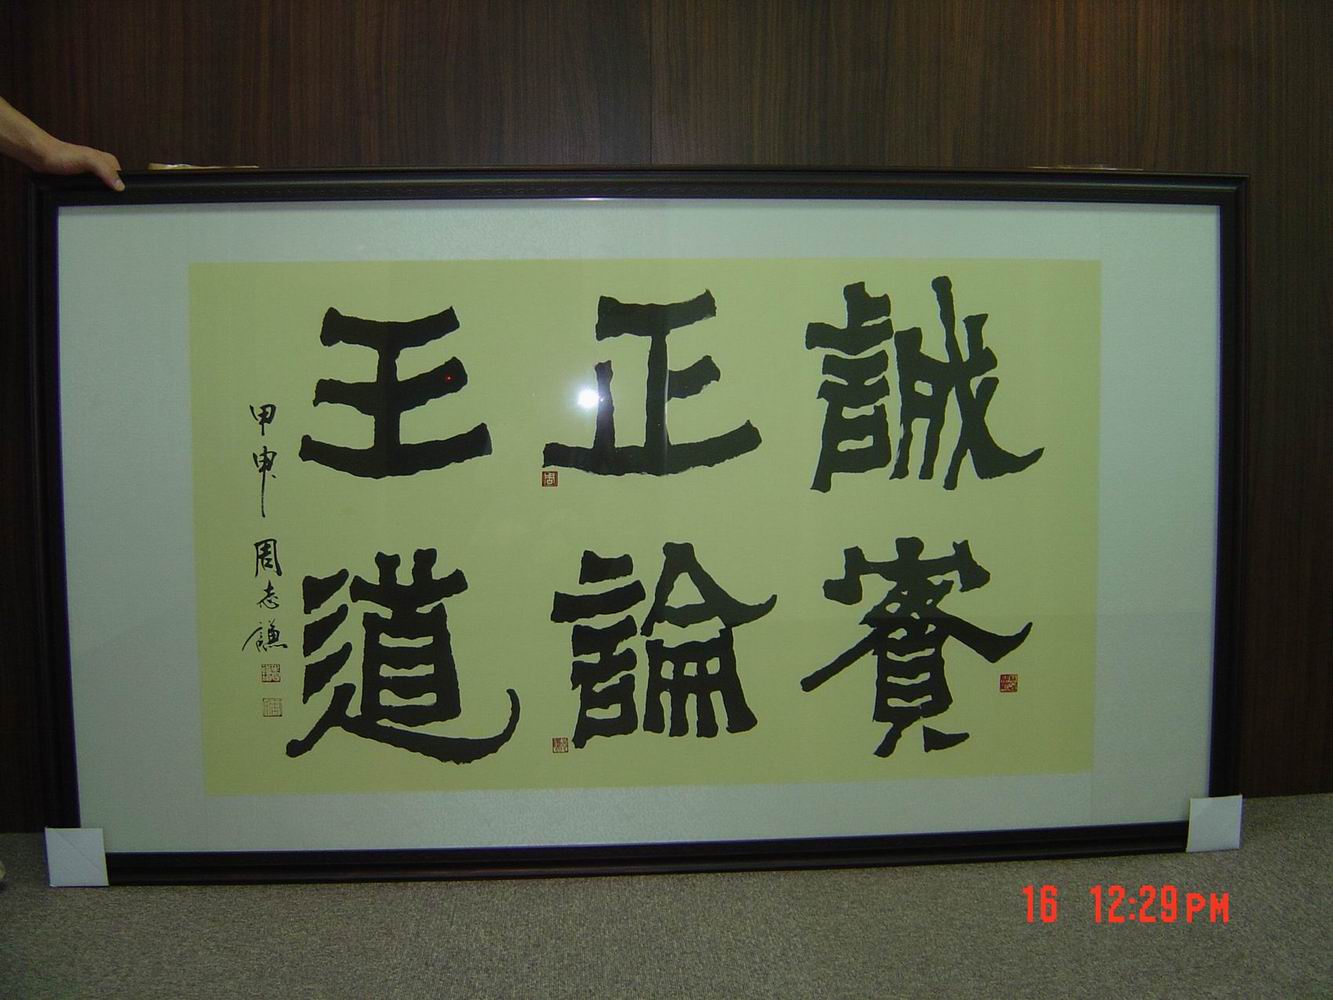 誠
正論
王道
甲申 周志謙
周
16 12:29PM